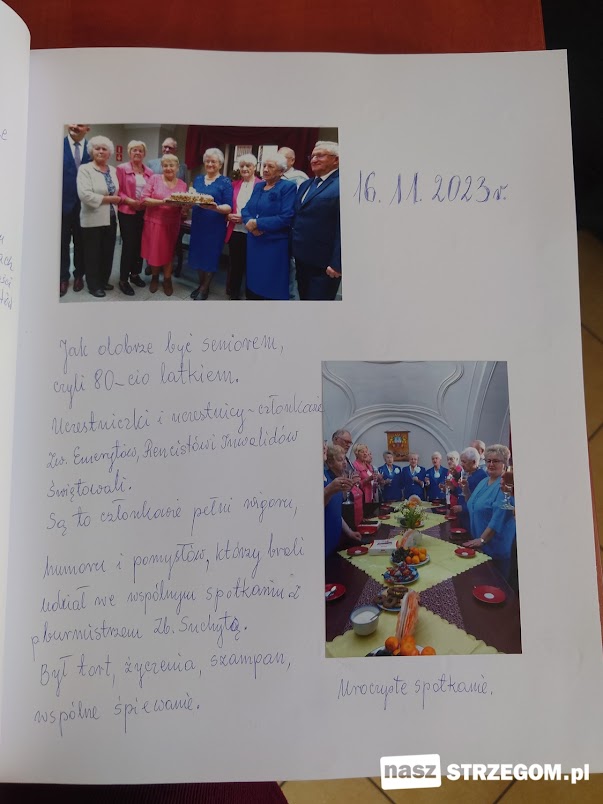 16.11.2023r.
Jak dobrze być seniorem,
czyli 80-cio latkiem.
Uczestniczki i uczestnicy - członkowie
Zw. Emerytów, Rencistów i Inwalidów
świętowali.
Są to członkowie pełni wigoru,
humoru i pomysłów, którzy brali
udział we wspólnym spotkaniu z
p burmistrzem Zb. Suchytą.
Był tort, życzenia, szampan,
wspólne śpiewanie.
Uroczyste spotkanie,
nasz STRZEGOM.pl